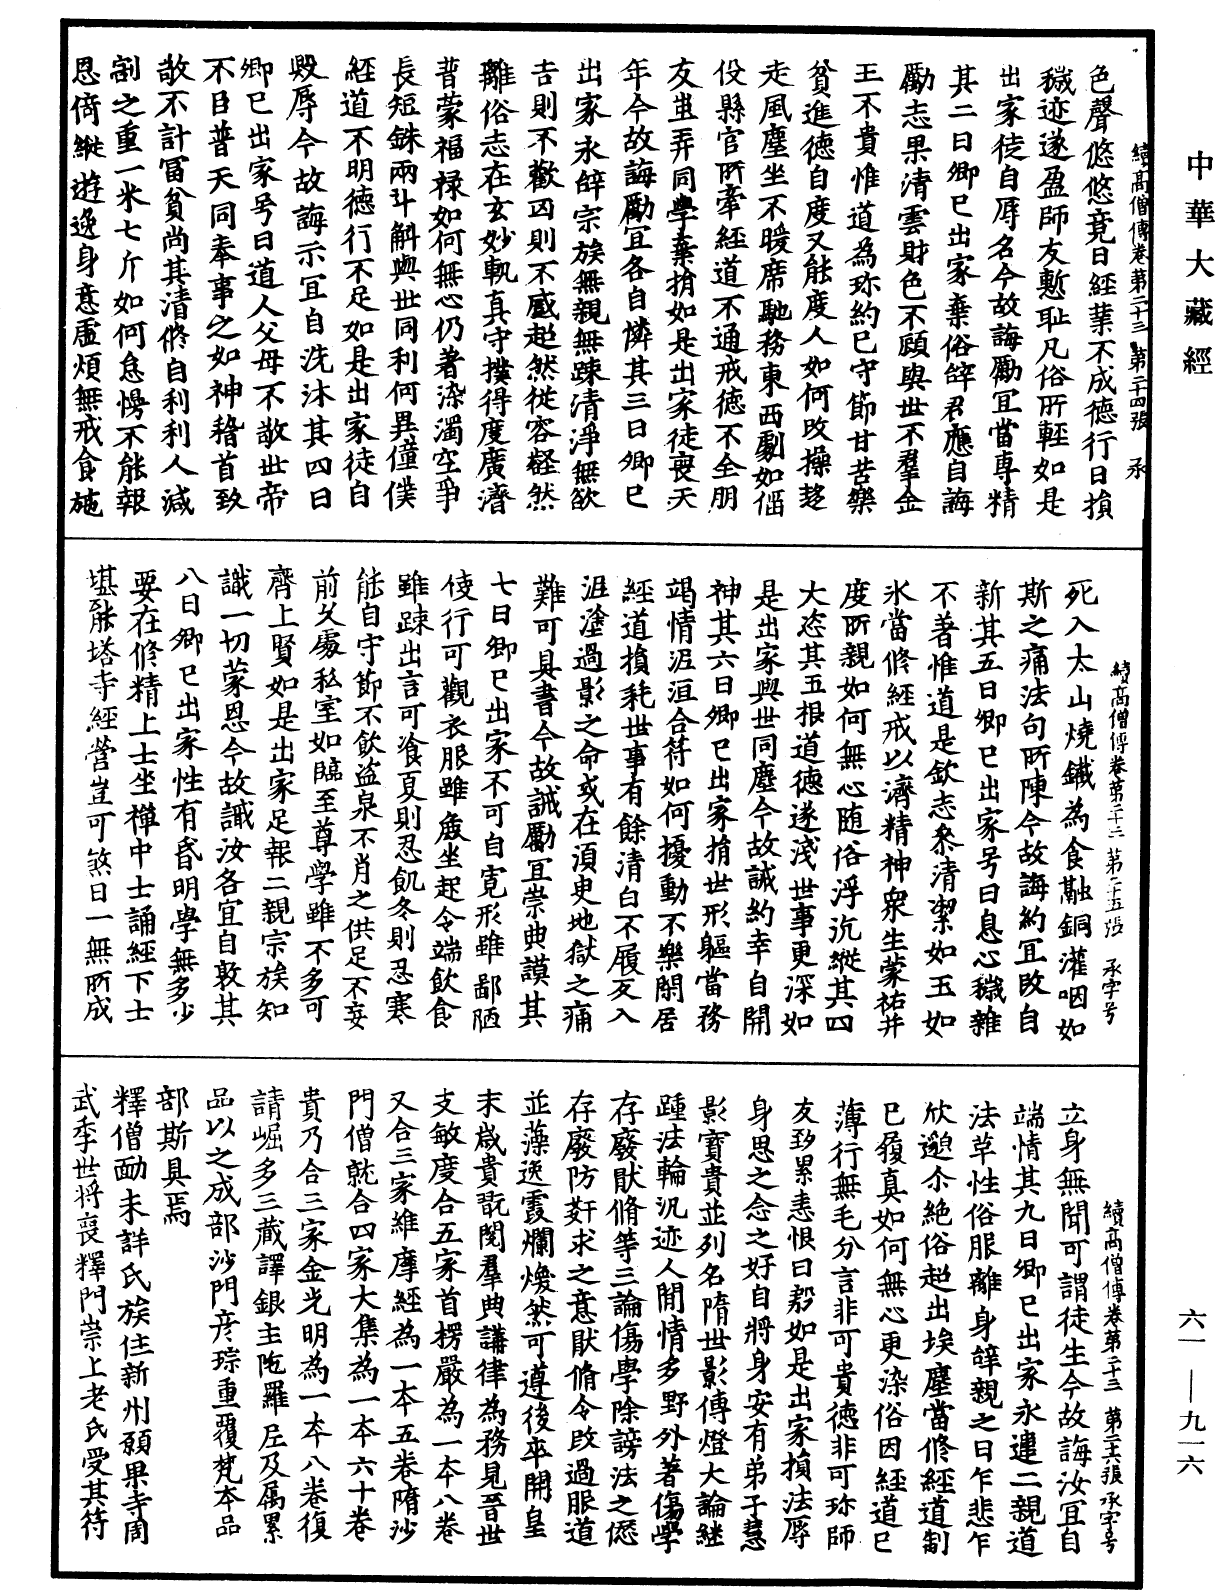 中華大藏經
續高僧傳卷第二十三 第二十四張 承
色聲悠悠竟日經業不成德行日損
穢迹遂盈師友慙恥凡俗所輕如是
出家徒自辱名今故誨勵宜當專精
其二曰卿已出家棄俗辝君應自誨
勵志果清雲財色不顧與世不羣金
玉不貴惟道為珎約已守節甘苦樂
貧進德自度又能度人如何改操趍
走風塵坐不暖席馳務東西劇如徭
役縣官所牽經道不通戒德不全朋
友蚩弄同學棄捎如是出家徒喪天
年今故誨勵宜各自憐其三曰卿已
出家永辝宗族無親無踈清淨無欲
吉則不歡凶則不慼超然從容豁然
離俗志在玄妙軌真守撲得度廣濟
普蒙福禄如何無心仍著染濁空爭
長短銖兩斗斛與世同利何異僮僕
經道不明德行不足如是出家徒自
毀辱今故誨示宜自洗沐其四曰
卿已出家号曰道人父母不敬世帝
不臣普天同奉事之如神稽首致
敬不計冨貧尚其清脩自利利人減
割之重一米七斤如何怠慢不能報
恩倚縱遊逸身意虛煩無戒食施
續高僧傳卷第二十三 第二十五張 承字号
死入太山燒鐵為食融銅灌咽如
斯之痛法句所陳今故誨約宜改自
新其五曰卿已出家号曰息心穢雜
不著惟道是欽志叅清潔如玉如
氷當修經戒以濟精神衆生蒙祐并
度所親如何無心随俗浮沉縱其四
大恣其五根道德遂淺世事更深如
是出家與世同塵今故誡約幸自開
神其六曰卿已出家捎世形軀當務
竭情泥洹合符如何擾動不樂閑居
經道損耗世事有餘清白不履反入
泥塗過影之命或在須臾地獄之痛
難可具書今故誡勵宜崇典謨其
七曰卿已出家不可自寬形雖鄙陋
使行可觀衣服雖麁坐起令端飲食
雖踈出言可飡夏則忍飢冬則忍寒
能自守節不飲盜泉不肖之供足不妄
前久處私室如臨至尊學雖不多可
齊上賢如是出家足報二親宗族知
識一切蒙恩今故誡汝各宜自敦其
八曰卿已出家性有昏明學無多少
要在修精上士坐禪中士誦經下士
堪能塔寺經營豈可煞日一無所成
續高僧傳卷第二十三 第二十六張 承字号
立身無聞可謂徒生今故誨汝宜自
端情其九曰卿已出家永違二親道
法革性俗服離身辝親之日乍悲乍
欣邈尒絶俗超出埃塵當修經道制
已履真如何無心更染俗因經道已
薄行無毛分言非可貴德非可珎師
友致累恚恨日殷如是出家損法辱
身思之念之好自將身安有弟子慧
影寶貴並列名隋世影傳燈大論継
踵法輪沉迹人閒情多野外著傷學
存廢猒脩等三論傷學除謗法之愆
存廢防姧求之意猒脩令改過服道
並藻逸霞爛煥然可遵後卒開皇
末歲貴翫閱羣典講律為務見晉世
支敏度合五家首楞嚴為一本八卷
又合三家維摩經為一本五卷隋沙
門僧就合四家大集為一本六十卷
貴乃合三家金光明為一本八卷復
請崛多三藏譯銀主陁羅尼及屬累
品以之成部沙門彦琮重覆梵本品
部斯具焉
釋僧勔未詳氏族住新州願果寺周
武季世将喪釋門崇上老氏受其符
六一——九一六